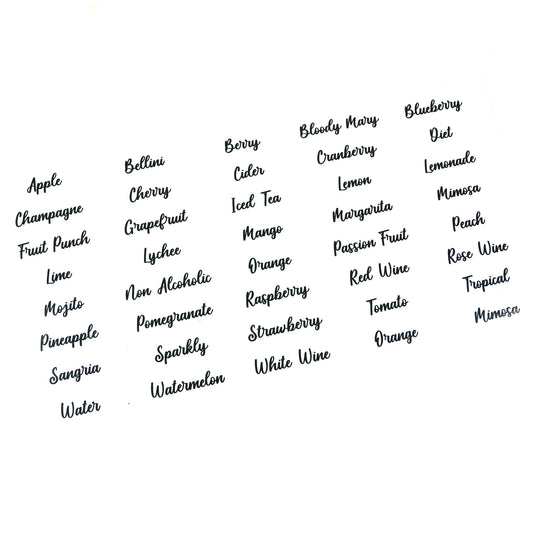 Apple Bellini Berry Bloody Mary Blueberry
Champagne Cherry Cider Cranberry Diet
Fruit Punch Grapefruit Iced Tea Lemon Lemonade
Lime Lychee Mango Margarita Mimosa
Mojito Non Alcoholic Orange Passion Fruit Peach
Pineapple Pomegranate Raspberry Red Wine Rose Wine
Sangria Sparkly Strawberry Tomato Tropical
Water Watermelon White Wine Orange Mimosa